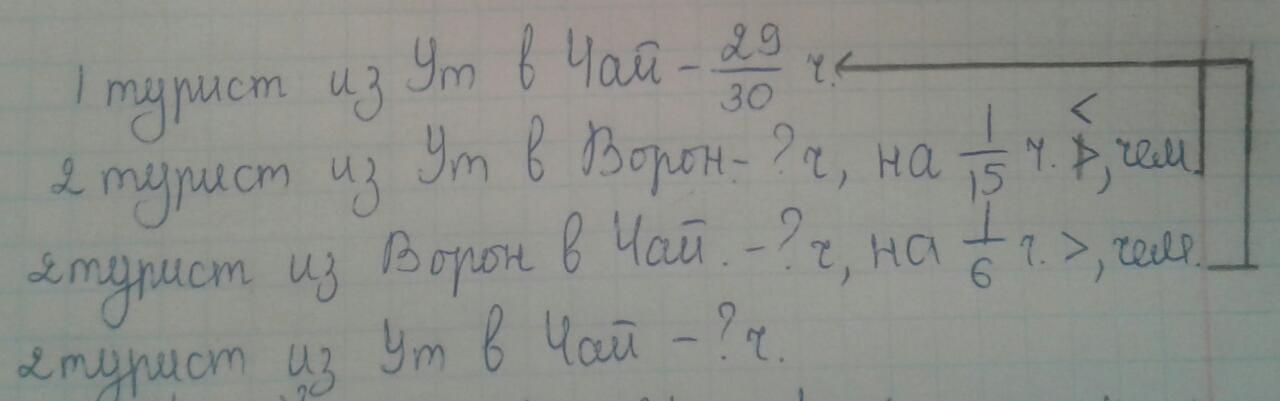 1 турист из Ут в Чай - 29/30 ч.
2 турист из Ут в Ворон - ? ч, на 1/15 ч. <, чем
2 турист из Ворон в Чай. - ? ч, на 1/6 ч. >, чем
2 турист из Ут в Чай - ? ч.